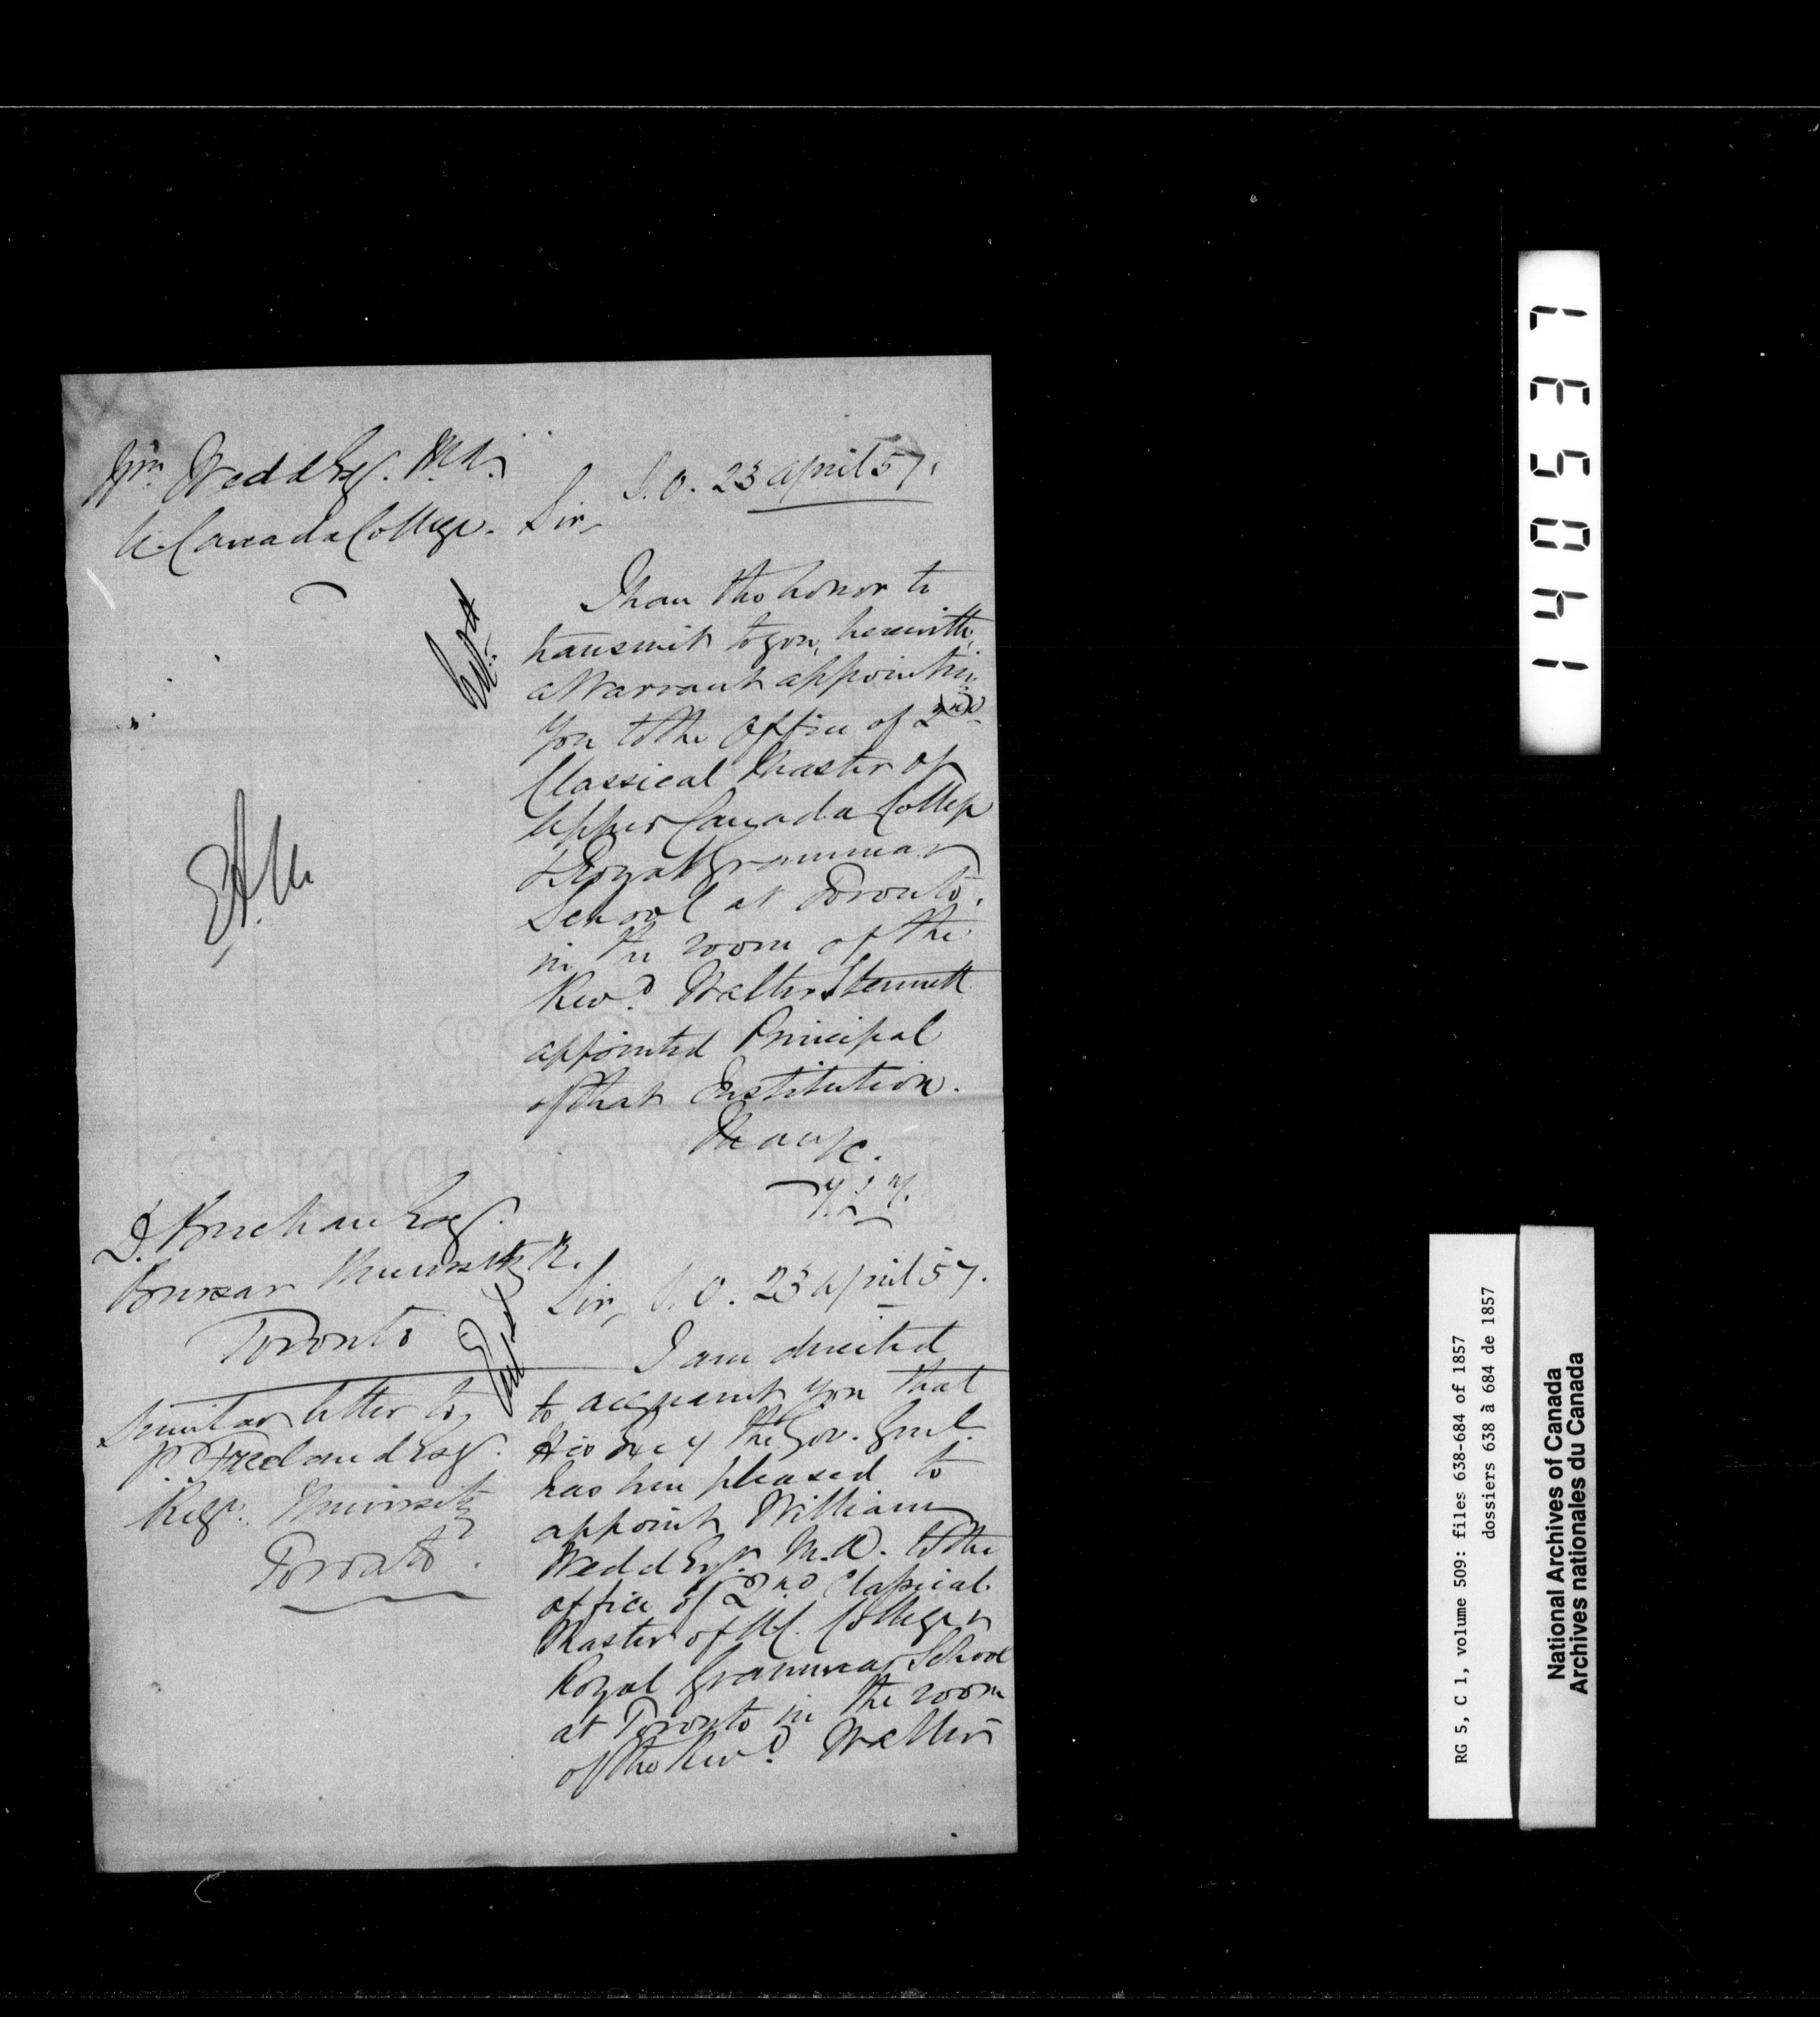 Wm. Wedd Esq. M.A.
U. Canada College.
S.O. 23 April 57.
Sir,
I have the honor to
transmit to you, herewith,
a Warrant appointing
you to the office of 2nd
Classical Master of
Upper Canada College
& Royal Grammar
School at Toronto,
in the room of the
Revd. Walter Stennett
appointed Principal
of that Institution.
I have &c.
D. Buchan Esq.
Bursar University
Toronto
Similar letter to
P. Freeland Esq.
Regr. University
Toronto.
S.O. 23 April 57.
Sir,
I am directed
to acquaint you that
His Excy the Gov. Genl.
has been pleased to
appoint William
Wedd Esqr. M.A. to the
office of 2nd Classical
Master of U.C. College &
Royal Grammar School
at Toronto in the room
of the Revd. Walter
140537
RG 5, C 1, volume 509: files 638-684 of 1857
dossiers 638 à 684 de 1857
National Archives of Canada
Archives nationales du Canada